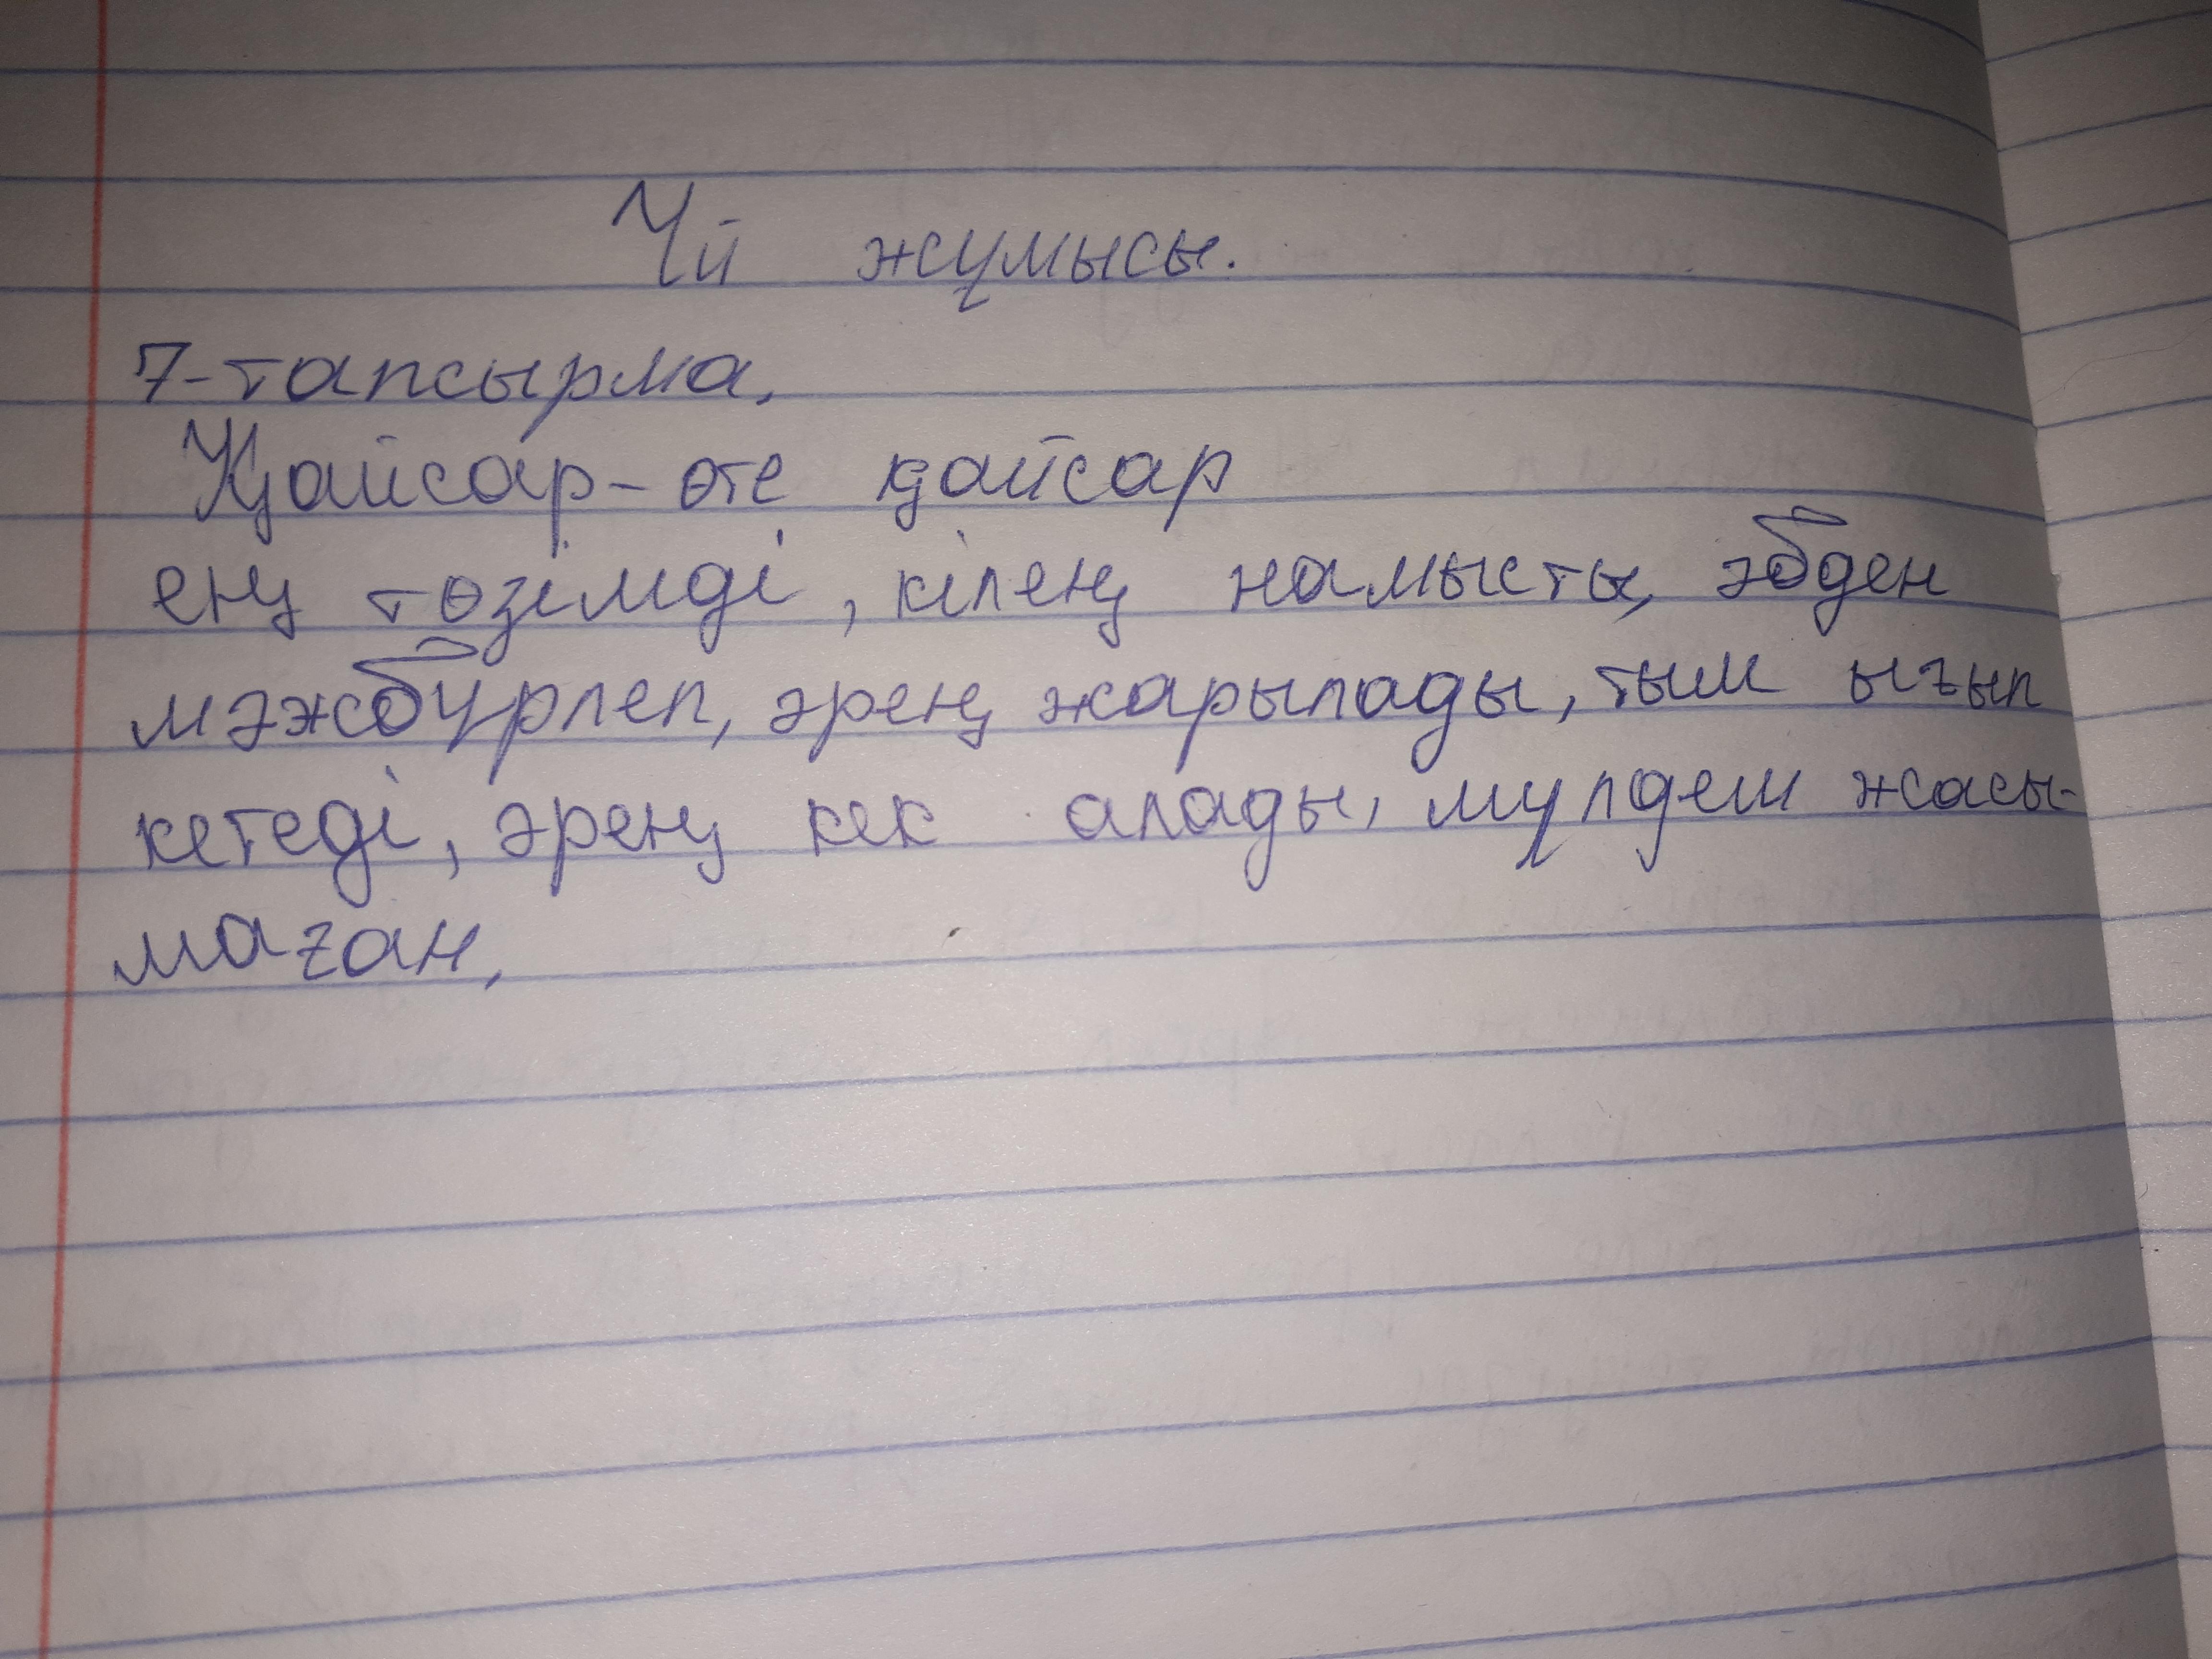 Үй жұмысы.
7-тапсырма.
Қайсар-өте қайсар
ең төзімді, кілең намысты, әбден
мәжбүрлеп, әрең жарылады, тым ығып
кетеді, әрең кек алады, мүлдем жасы-
маған,